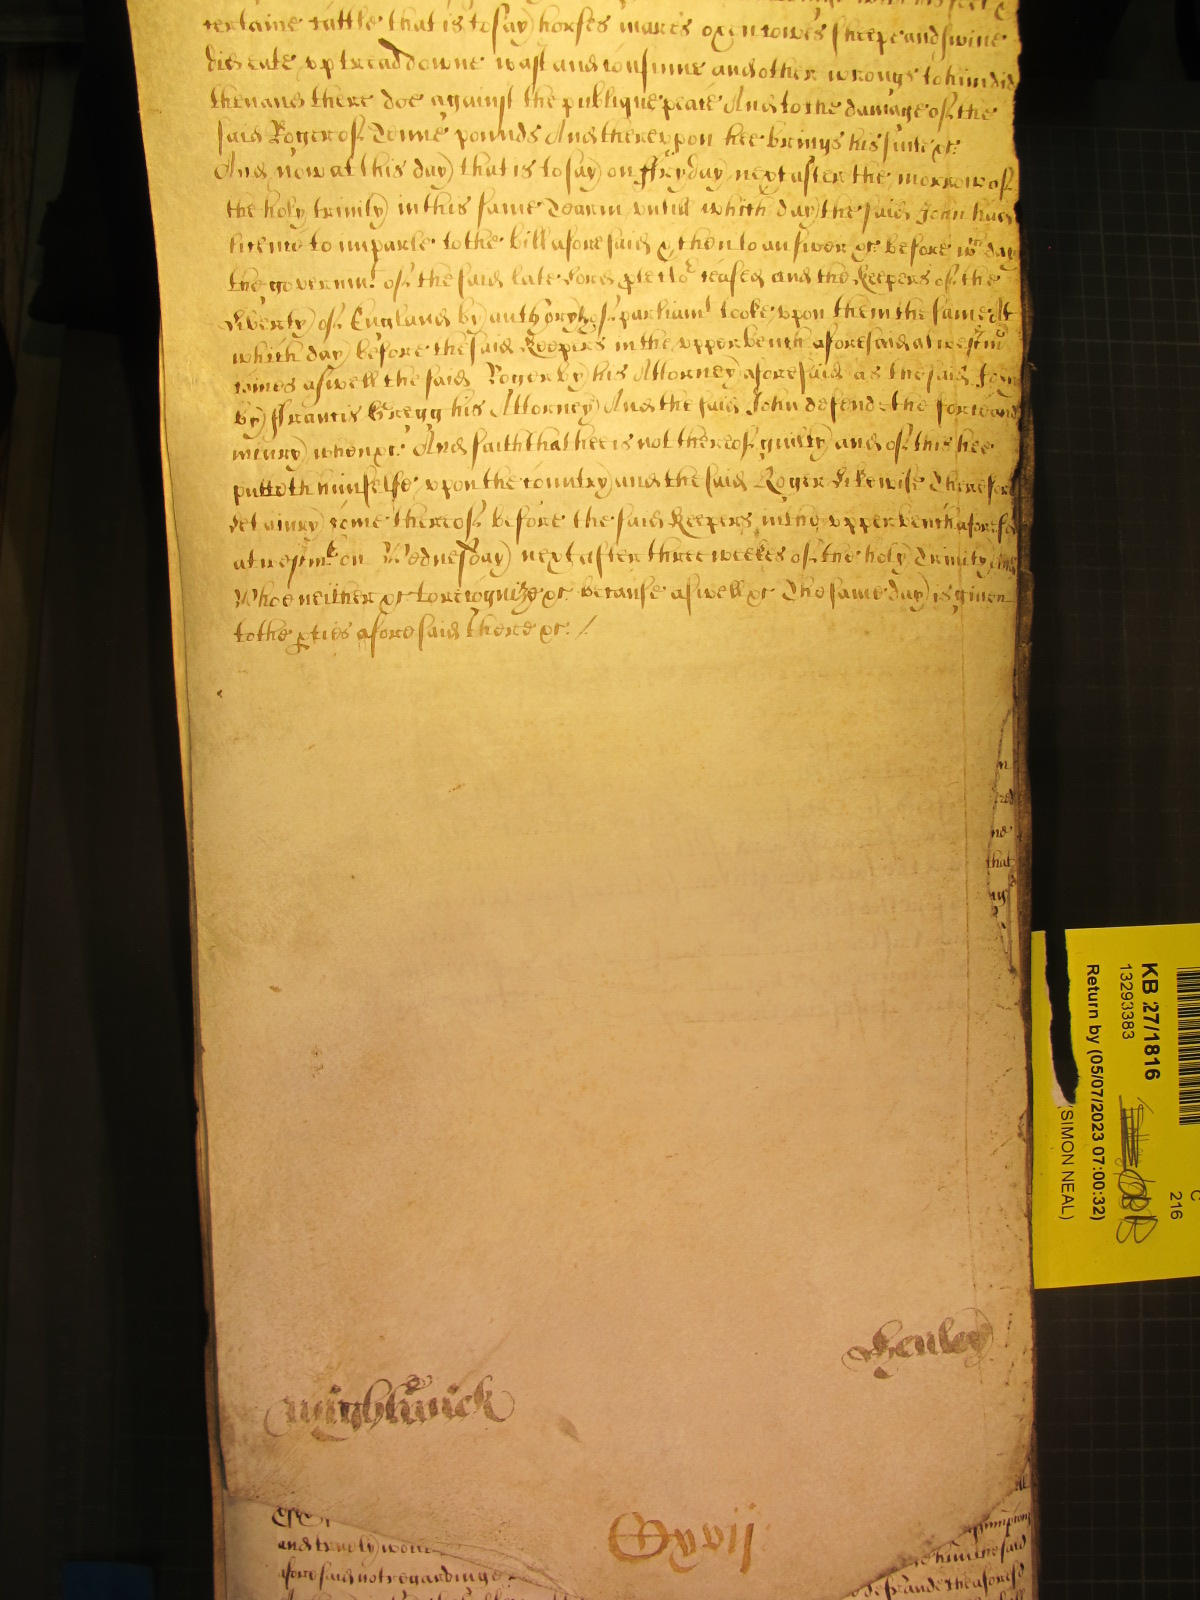 certaine cattle that is to say horses mares oxen cowes sheepe and swine
did eate up tread downe wast and consume and other wrongs to him did
then and there doe against the publique peace And to the damage of the
said Roger of Tenne pounds And thereupon hee brings his suite &c:
And now at this day that is to say on ffryday next after the morrow of
the holy trinity in this same Tearm untill which day the said John had
licence to imparle to the bill aforesaid & then to answer &c before wch day
the governmt of the said late Lord ceased and the Keepers of the
Liberty of England by authority of parliamt tooke upon them the same At
which day before the said Keepers in the upper bench aforesaid at westmr
comes aswell the said Roger by his Attorney aforesaid as the said John
by ffrancis Gregg his Attorney And the said John defends the force and
iniury when &c: And saith that hee is not thereof guilty and of this hee
putteth himselfe upon the country and the said Roger likewise Therefore
let a iury come thereof before the said Keepers in the upper bench aforesd
at westmr on Wednesday next after three weekes of the holy Trinity
Whoe neither &c to recognize &c because aswell &c The same day is given
to the pties aforesaid there &c: /
n
red
ne
that
Henley
Wightwick
and truely
aforesaid not regardinge
him the said
defraude the aforesd
Cxvij
KB 27/1816
13293383
Return by (05/07/2023 07:00:32)
(SIMON NEAL)
C
216